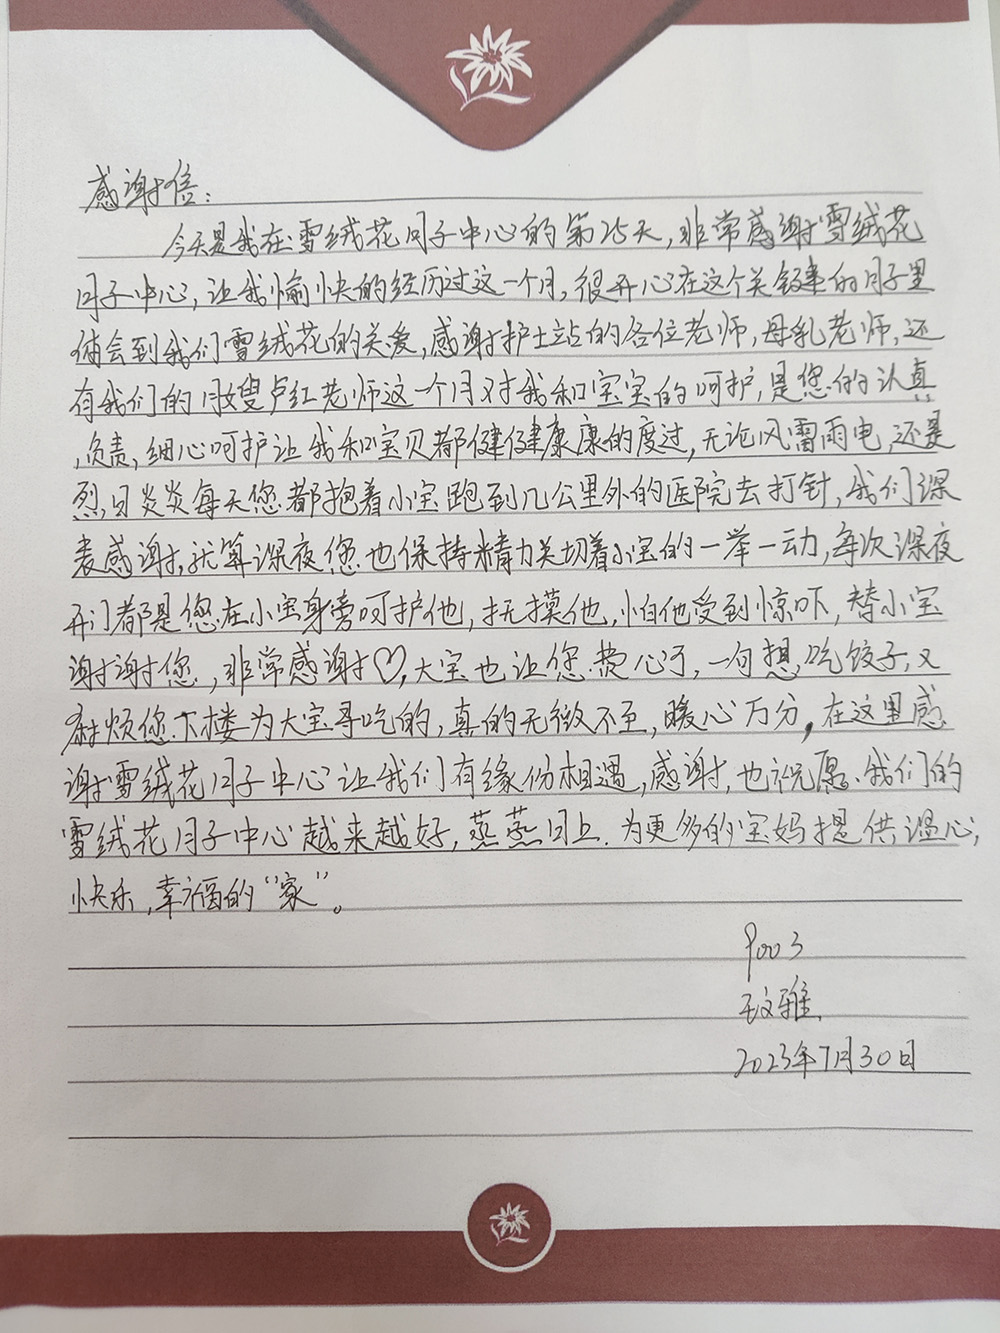 感谢信：
今天是我在雪绒花月子中心的第25天，非常感谢雪绒花
月子中心，让我愉快的经历过这一个月，很开心在这个关键的月子里
体会到我们雪绒花的关爱，感谢护士站的各位老师，母乳老师，还
有我们的月嫂卢红老师这一个月对我和宝宝的呵护，是您的认真
，负责，细心呵护让我和宝贝都健健康康的度过，无论风雷雨电，还是
烈日炎炎每天您都抱着小宝跑到几公里外的医院去打针，我们深
表感谢，就算深夜您也保持精力关切着小宝的一举一动，每次深夜
开门都是您在小宝身旁呵护他，抚摸他，怕他受到惊吓，替小宝
谢谢您，非常感谢♡，大宝也让您费心了，一句想吃饺子，又
麻烦您下楼为大宝寻吃的，真的无微不至，暖心万分，在这里感
谢雪绒花月子中心让我们有缘份相遇，感谢，也祝愿我们的
雪绒花月子中心越来越好，蒸蒸日上．为更多的宝妈提供温心，
快乐，幸福的“家”。
P003
王文雅
2023年7月30日